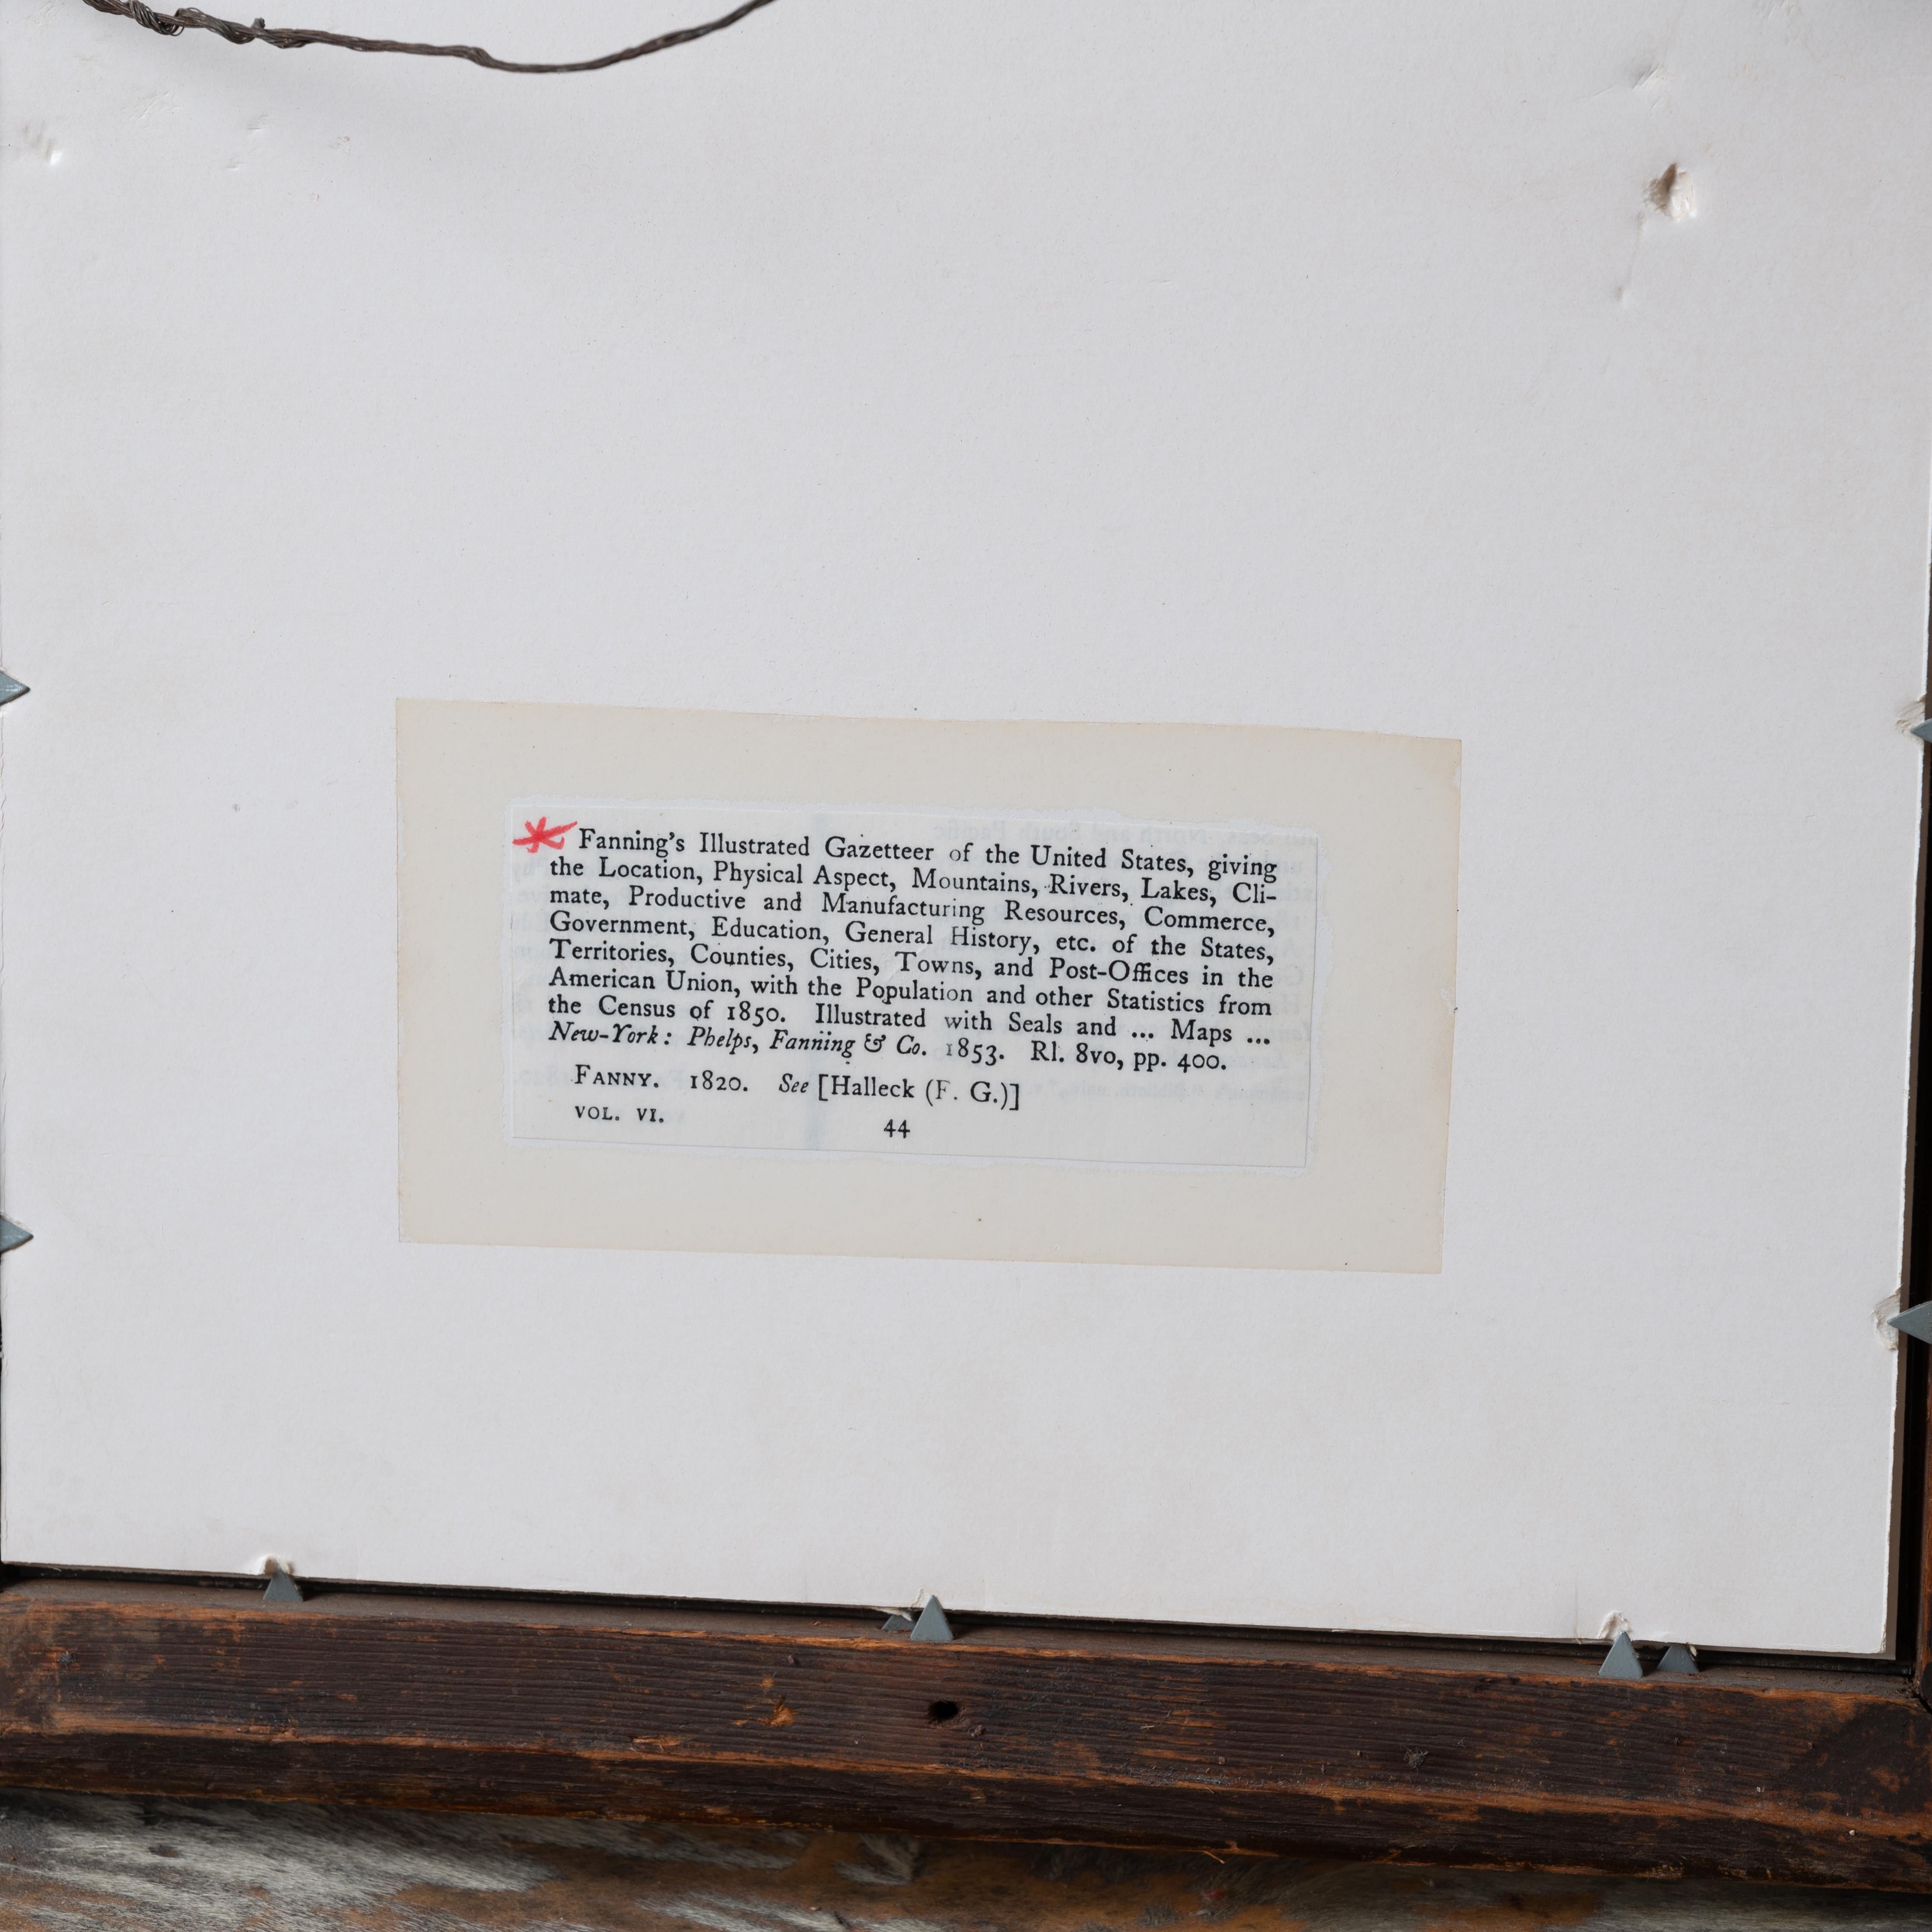 Fanning's Illustrated Gazetteer of the United States, giving
the Location, Physical Aspect, Mountains, Rivers, Lakes, Cli-
mate, Productive and Manufacturing Resources, Commerce,
Government, Education, General History, etc. of the States,
Territories, Counties, Cities, Towns, and Post-Offices in the
American Union, with the Population and other Statistics from
the Census of 1850. Illustrated with Seals and ... Maps ...
New-York: Phelps, Fanning & Co. 1853. Rl. 8vo, pp. 400.
FANNY. 1820. See [Halleck (F. G.)]
VOL. VI.
44